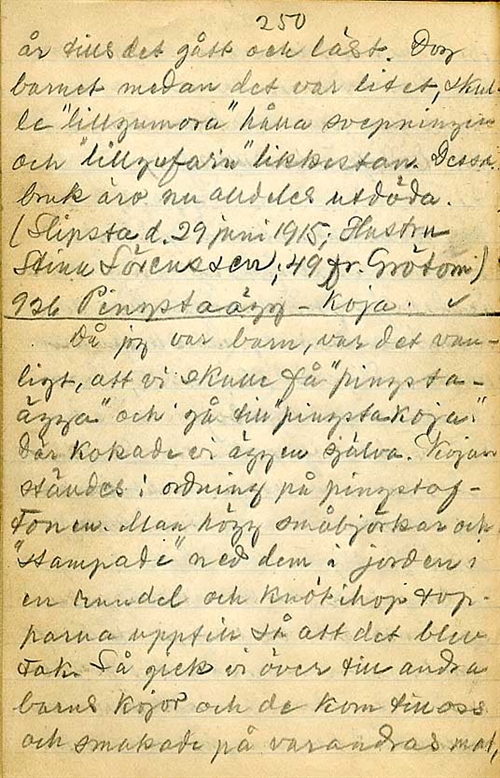 250
år tills det gått och läst. Dog
barnet medan det var litet, skul-
le "lillgumora" hålla svepningin
och "lillgufarn" likkestan. Dessa
bruk äro nu alldeles utdöda.
(Slipsta d. 29 juni 1915; Hustru
Stina Sörensson; 49 fr. Grötom)
926 Pingstaägg - koja. ✓
Då jag var barn, var det van-
ligt, att vi skulle få "pingsta-
ägga" och gå till "pingstakoja."
Där kokade vi äggen själva. Kojan
ständes i ordning på pingstaf-
tonen. Man högg småbjörkar och
"stampade" ned dem i jorden i
en rundel och knöt ihop top-
parna upptill så att det blev
tak. Så gick vi över till andra
barns kojor och de kom till oss
och smakade på varandras mat,